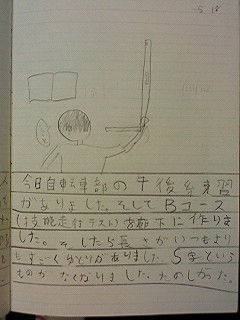 5.18
今日自転車部の午後を練習
がありました。そしてBコース
(技能走行テスト)を廊下に作りま
した。そしたら長さがいつもより
もすごくゆとりがありました。S字という
ものがなくなりました。たのしかった。